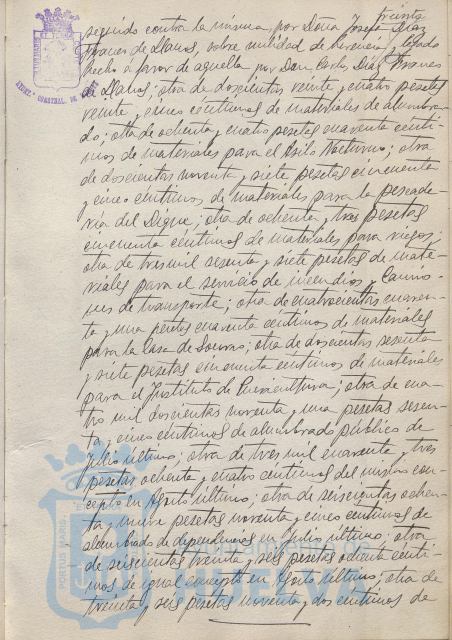 treinta
seguido contra la misma por Doña Josefa Díaz
Franco de Llanos, sobre nulidad de herencia y legado
hecho a favor de aquella por Don Carlos Díaz Franco
de Llanos; otra de doscientas veinte y cuatro pesetas
veinte y cinco céntimos de materiales de alumbra-
do; otra de ochenta y cuatro pesetas cuarenta cénti-
mos de materiales para el Asilo Nocturno; otra
de doscientas noventa y siete pesetas cincuenta
y cinco céntimos de materiales para la pescade-
ría del Dique; otra de ochenta y tres pesetas
cincuenta céntimos de materiales para riegos;
otra de tres mil sesenta y siete pesetas de mate-
riales para el servicio de incendios y camio-
nes de transporte; otra de cuatrocientas cuaren-
ta y una pesetas cuarenta céntimos de materiales
para la Casa de Socorro; otra de doscientas sesenta
y siete pesetas cincuenta céntimos de materiales
para el Instituto de Puericultura; otra de cua-
tro mil doscientas noventa y una pesetas sesen-
ta y cinco céntimos de alumbrado público de
Julio último; otra de tres mil cuarenta y tres
pesetas ochenta y cuatro céntimos del mismo con-
cepto en Agosto último; otra de seiscientas ochen-
ta y nueve pesetas noventa y cinco céntimos de
alumbrado de dependencias en Julio último; otra
de seiscientas treinta y seis pesetas ochenta cénti-
mos, de igual concepto en Agosto último; otra de
treinta y seis pesetas noventa y dos céntimos de
PORTUS MARIS
HUELVA